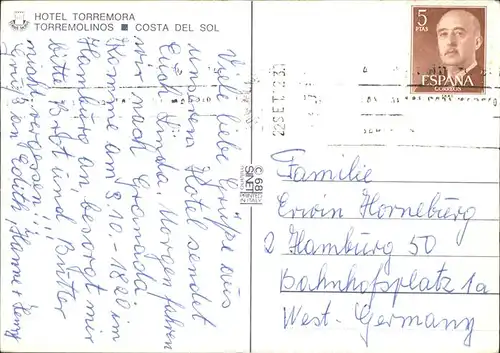 HOTEL TORREMORA
TORREMOLINOS ■ COSTA DEL SOL
Viele liebe Grüße aus
unserem Hotel sendet
Euch Linda. Morgen fahren
wir nach Granada.
Komme am 3.10. - 18.20 im
Hamburg an, besorgt mir
bitte Brot und Butter
nicht vergessen!!!
Grüße an Edith, Hanne +
5
PTAS
ESPAÑA
CORREOS
22SET
C 68
PRINTED
IN ITALY
Familie
Erwin Horneburg
2 Hamburg 50
Bahnhofsplatz 1a
West-Germany